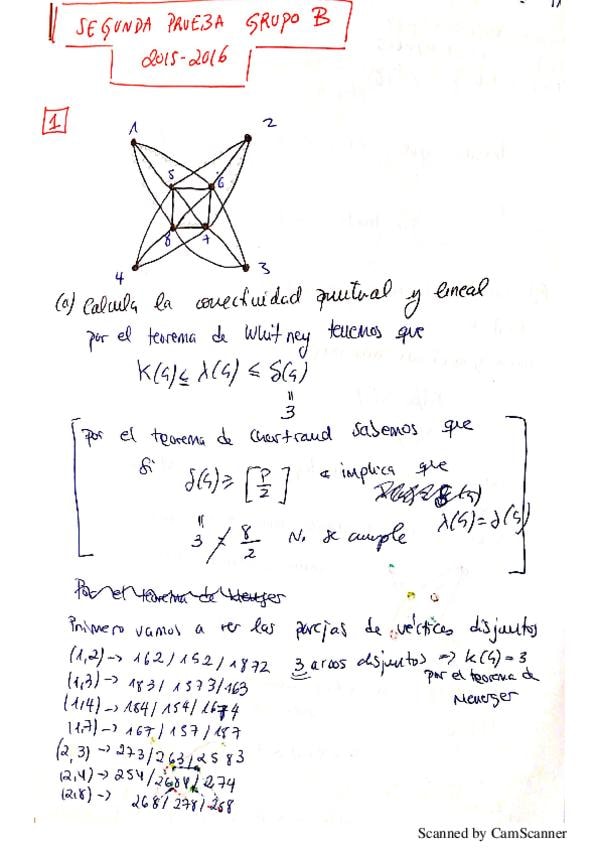 SEGUNDA PRUEBA GRUPO B
2015-2016
1
1 2
5 6
8 7
4 3
(a) Calcula la conectividad puntual y lineal
por el teorema de Whitney tenemos que
K(G) ≤ λ(G) ≤ δ(G)
=
3
por el teorema de Chartrand sabemos que
si δ(G) ≥ [P/2] implica que
λ(G) = δ(G)
3 ≠ 8/2 No se cumple
Por el teorema de Menger
Primero vamos a ver las parejas de vértices disjuntos
(1,2) -> 162 / 152 / 1872 3 arcos disjuntos => K(G) = 3
(1,3) -> 183 / 1573 / 163 por el teorema de
(1,4) -> 184 / 154 / 1674 Menger
(1,7) -> 167 / 157 / 187
(2,3) -> 273 / 263 / 2583
(2,4) -> 254 / 2684 / 274
(2,8) -> 268 / 278 / 258
Scanned by CamScanner